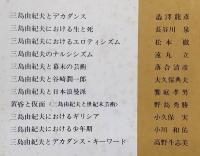 三島由紀夫とデカダンス 澁澤龍彦
三島由紀夫における生と死 長谷川泉
三島由紀夫におけるエロティシズム 松本徹
三島由紀夫のナルシシズム 遠丸立
三島由紀夫と幕末の芸術 落合清彦
三島由紀夫と谷崎潤一郎 大久保典夫
三島由紀夫と日本浪曼派 饗庭孝男
黄昏と仮面(三島由紀夫と世紀末芸術) 野島秀勝
三島由紀夫におけるギリシア 小久保実
三島由紀夫における少年期 小川和佑
三島由紀夫とデカダンス・キーワード 高野斗志美